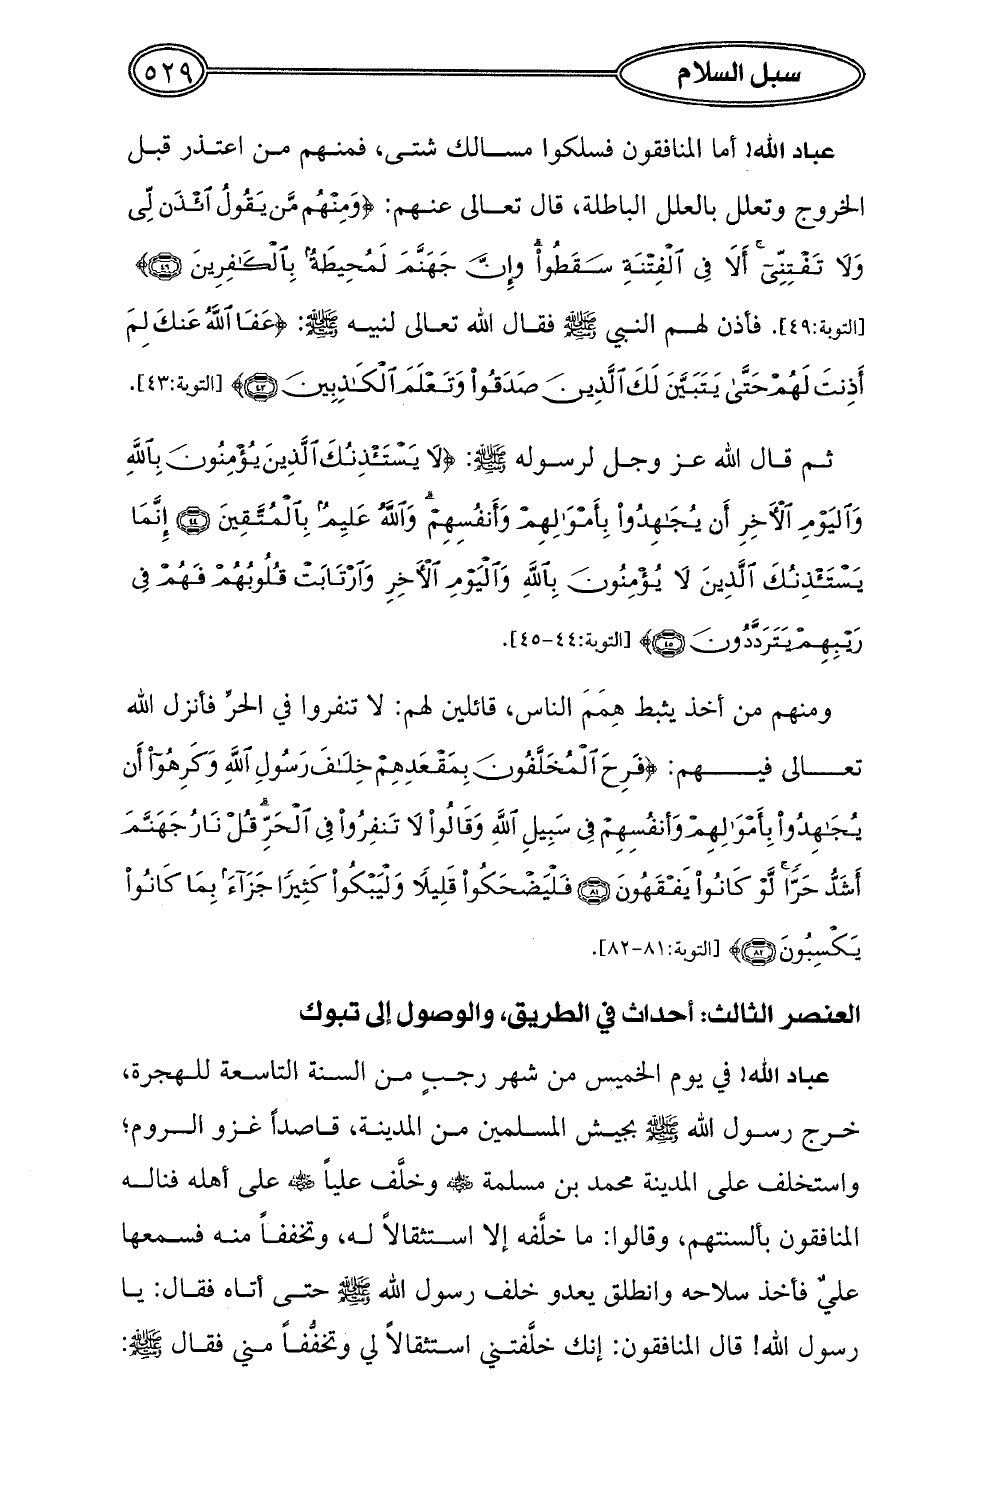 سبل السلام
٥٢٩
عباد الله! أما المنافقون فسلكوا مسالك شتى، فمنهم من اعتذر قبل
الخروج وتعلل بالعلل الباطلة، قال تعالى عنهم: ﴿وَمِنْهُم مَّن يَقُولُ ٱئْذَن لِّى
وَلَا تَفْتِنِّىٓ ۚ أَلَا فِى ٱلْفِتْنَةِ سَقَطُوا۟ ۗ وَإِنَّ جَهَنَّمَ لَمُحِيطَةٌۢ بِٱلْكَٰفِرِينَ ﴿٤٩﴾﴾
[التوبة:٤٩]. فأذن لهم النبي ﷺ فقال الله تعالى لنبيه ﷺ: ﴿عَفَا ٱللَّهُ عَنكَ لِمَ
أَذِنتَ لَهُمْ حَتَّىٰ يَتَبَيَّنَ لَكَ ٱلَّذِينَ صَدَقُوا۟ وَتَعْلَمَ ٱلْكَٰذِبِينَ ﴿٤٣﴾﴾ [التوبة:٤٣].
ثم قال الله عز وجل لرسوله ﷺ: ﴿لَا يَسْتَـْٔذِنُكَ ٱلَّذِينَ يُؤْمِنُونَ بِٱللَّهِ
وَٱلْيَوْمِ ٱلْـَٔاخِرِ أَن يُجَٰهِدُوا۟ بِأَمْوَٰلِهِمْ وَأَنفُسِهِمْ ۗ وَٱللَّهُ عَلِيمٌۢ بِٱلْمُتَّقِينَ ﴿٤٤﴾ إِنَّمَا
يَسْتَـْٔذِنُكَ ٱلَّذِينَ لَا يُؤْمِنُونَ بِٱللَّهِ وَٱلْيَوْمِ ٱلْـَٔاخِرِ وَٱرْتَابَتْ قُلُوبُهُمْ فَهُمْ فِى
رَيْبِهِمْ يَتَرَدَّدُونَ ﴿٤٥﴾﴾ [التوبة:٤٤-٤٥].
ومنهم من أخذ يثبط هِمَمَ الناس، قائلين لهم: لا تنفروا في الحرِّ فأنزل الله
تعالى فيهم: ﴿فَرِحَ ٱلْمُخَلَّفُونَ بِمَقْعَدِهِمْ خِلَٰفَ رَسُولِ ٱللَّهِ وَكَرِهُوٓا۟ أَن
يُجَٰهِدُوا۟ بِأَمْوَٰلِهِمْ وَأَنفُسِهِمْ فِى سَبِيلِ ٱللَّهِ وَقَالُوا۟ لَا تَنفِرُوا۟ فِى ٱلْحَرِّ ۗ قُلْ نَارُ جَهَنَّمَ
أَشَدُّ حَرًّا ۚ لَّوْ كَانُوا۟ يَفْقَهُونَ ﴿٨١﴾ فَلْيَضْحَكُوا۟ قَلِيلًا وَلْيَبْكُوا۟ كَثِيرًا جَزَآءًۢ بِمَا كَانُوا۟
يَكْسِبُونَ ﴿٨٢﴾﴾ [التوبة:٨١-٨٢].
العنصر الثالث: أحداث في الطريق، والوصول إلى تبوك
عباد الله! في يوم الخميس من شهر رجبٍ من السنة التاسعة للهجرة،
خرج رسول الله ﷺ بجيش المسلمين من المدينة، قاصداً غزو الروم؛
واستخلف على المدينة محمد بن مسلمة ﵁ وخلَّف علياً ﵁ على أهله فناله
المنافقون بألسنتهم، وقالوا: ما خلَّفه إلا استثقالاً له، وتخففاً منه فسمعها
عليٌ فأخذ سلاحه وانطلق يعدو خلف رسول الله ﷺ حتى أتاه فقال: يا
رسول الله! قال المنافقون: إنك خلَّفتني استثقالاً لي وتخفُّفاً مني فقال ﷺ: